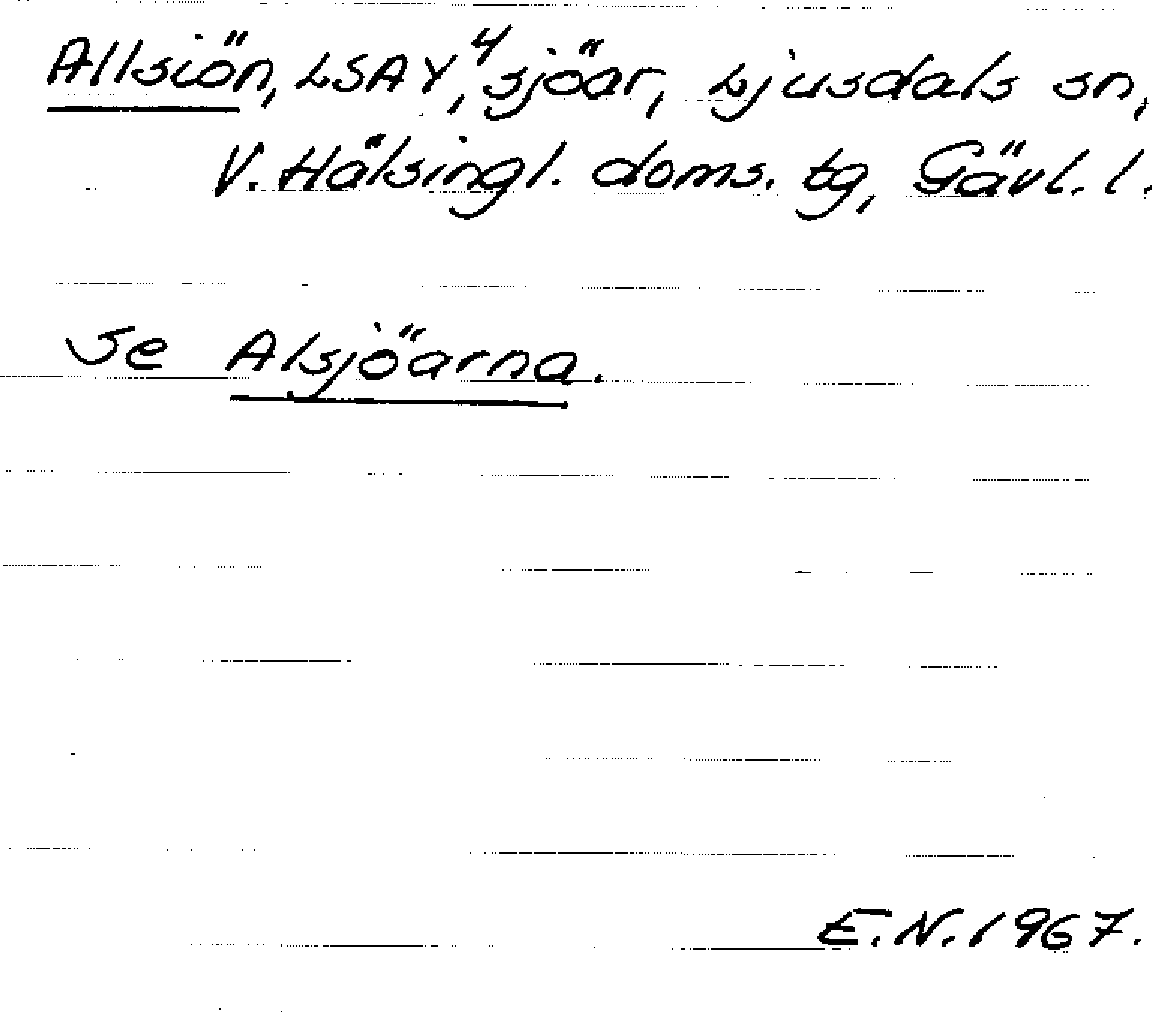 Allsiön, LSA Y⁴, sjöar, Ljusdals sn,
V. Hälsingl. doms. tg, Gävl. l.
Se Alsjöarna.
E.N. 1967.